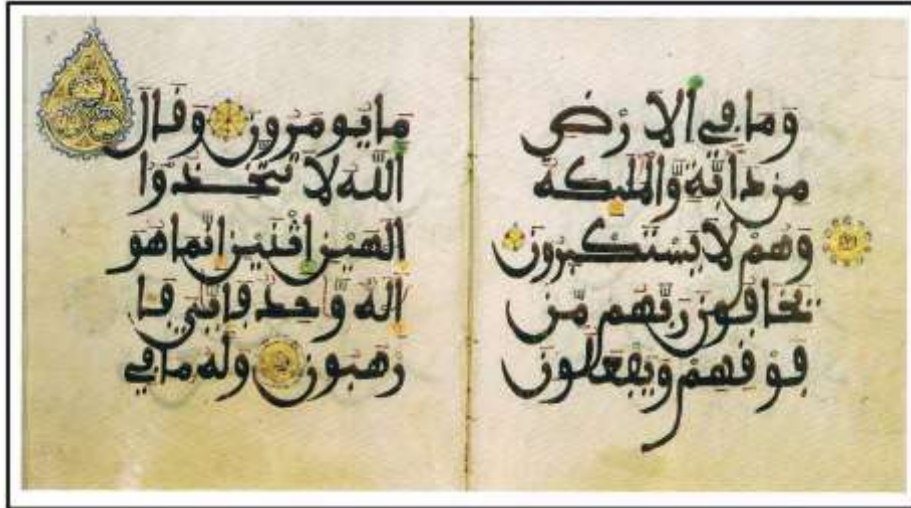 وَمَا فِي اَلَارْضِ
مِن دَآبَّةٍ وَّالْمَلَٰٓئِكَةُ
وَهُمْ لَا يَسْتَكْبِرُونَ
يَخَافُونَ رَبَّهُم مِّن
فَوْقِهِمْ وَيَفْعَلُونَ
مَا يُومَرُونَ وَقَالَ
اَللَّهُ لَا تَتَّخِذُوٓاْ
إِلَٰهَيْنِ اِثْنَيْنِ إِنَّمَا هُوَ
إِلَٰهٌ وَّٰحِدٌ فَإِيَّٰيَ فَا
رْهَبُونِ وَلَهُ مَا فِي